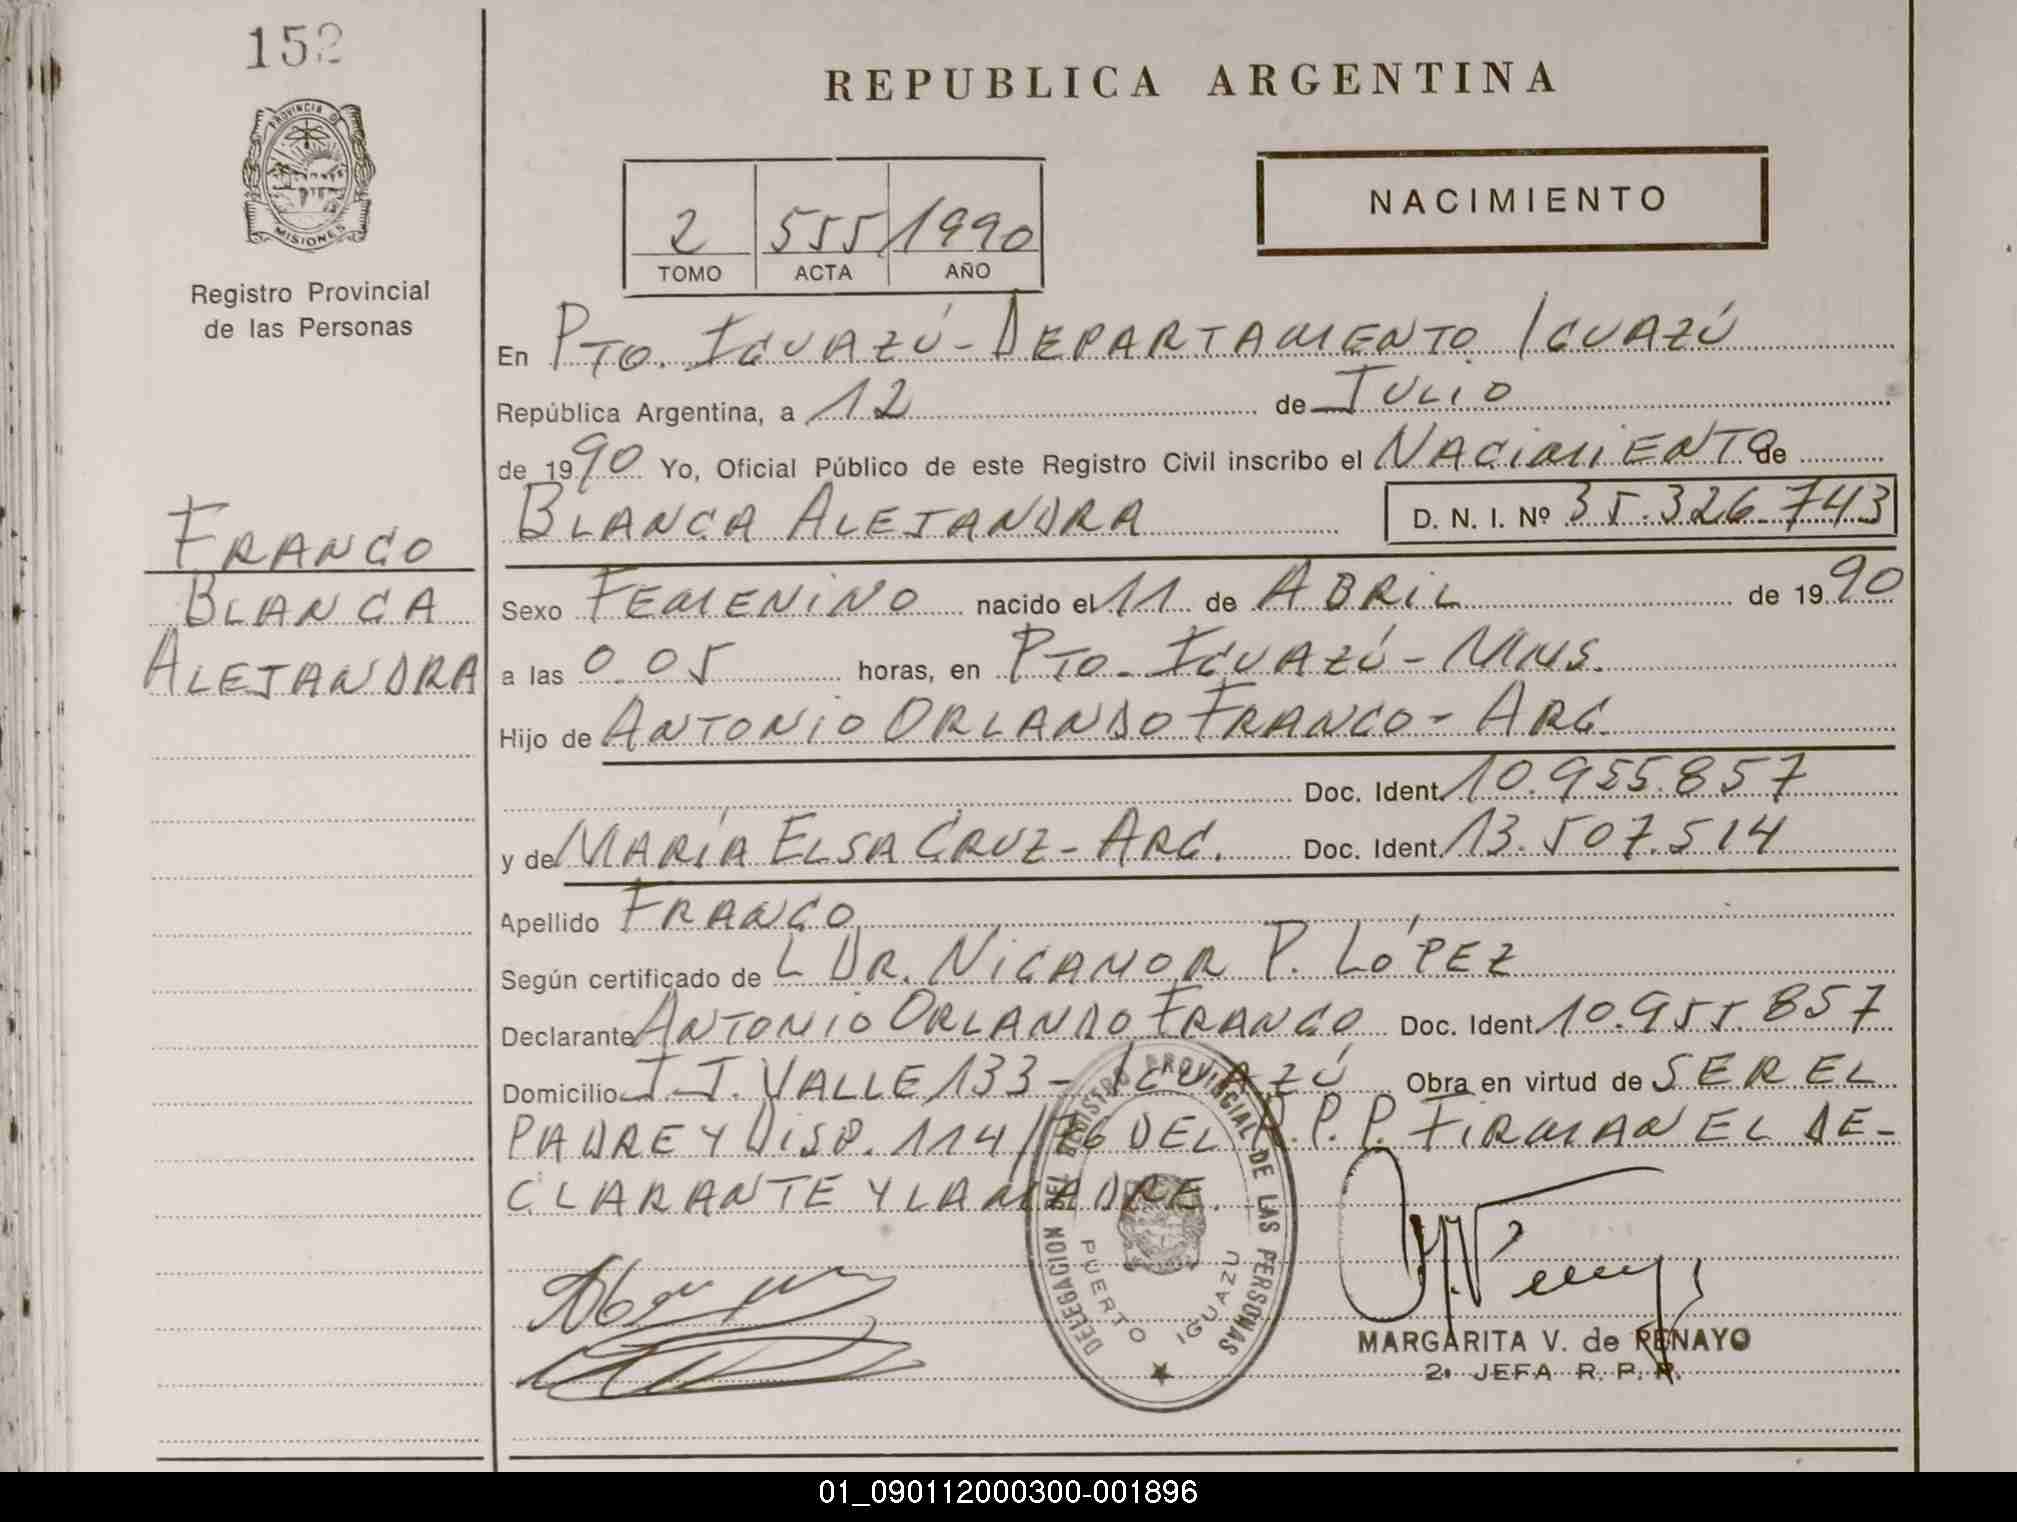 152
PROVINCIA DE
MISIONES
Registro Provincial
de las Personas
FRANCO
BLANCA
ALEJANDRA
REPUBLICA ARGENTINA
NACIMIENTO
2 555 1990
TOMO ACTA AÑO
En PTO. IGUAZÚ - DEPARTAMENTO IGUAZÚ
República Argentina, a 12 de JULIO
de 1990 Yo, Oficial Público de este Registro Civil inscribo el NACIMIENTO de
BLANCA ALEJANDRA D. N. I. Nº 35.326.743
Sexo FEMENINO nacido el 11 de ABRIL de 1990
a las 0.05 horas, en PTO. IGUAZÚ - MNS.
Hijo de ANTONIO ORLANDO FRANCO - ARG.
Doc. Ident. 10.955.857
y de MARÍA ELSA CRUZ - ARG. Doc. Ident. 13.507.514
Apellido FRANCO
Según certificado de L DR. NICANOR P. LÓPEZ
Declarante ANTONIO ORLANDO FRANCO Doc. Ident. 10.955.857
Domicilio J.J. VALLE 133 - IGUAZÚ Obra en virtud de SER EL
PADRE Y DISP. 114/76 DEL R.P.P. FIRMAN EL DE-
CLARANTE Y LA MADRE.
DELEGACION DEL REGISTRO PROVINCIAL DE LAS PERSONAS
PUERTO IGUAZU
MARGARITA V. de PENAYO
2ª JEFA R. P. P.
01_090112000300-001896